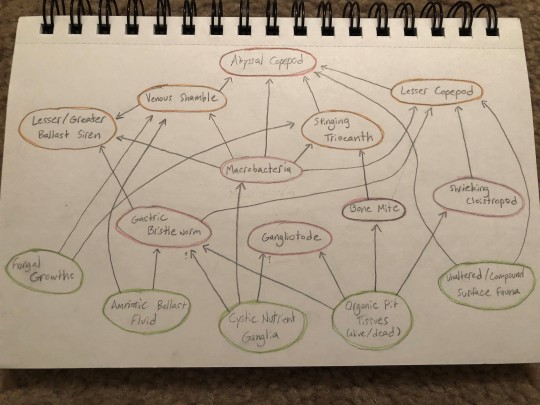 Abyssal Copepod
Venous Shamble
Lesser Copepod
Lesser/Greater
Ballast Siren
Stinging
Trioeanth
Macrobacteria
Shrieking
Gastric
Bristleworm
Bone Mite
Gangliotode
Fungal
Growths
Amniotic Ballast
Fluid
Cystic Nutrient
Ganglia
Organic Pit
Tissues
(alive/dead)
Unaltered/Compound
Surface Fauna